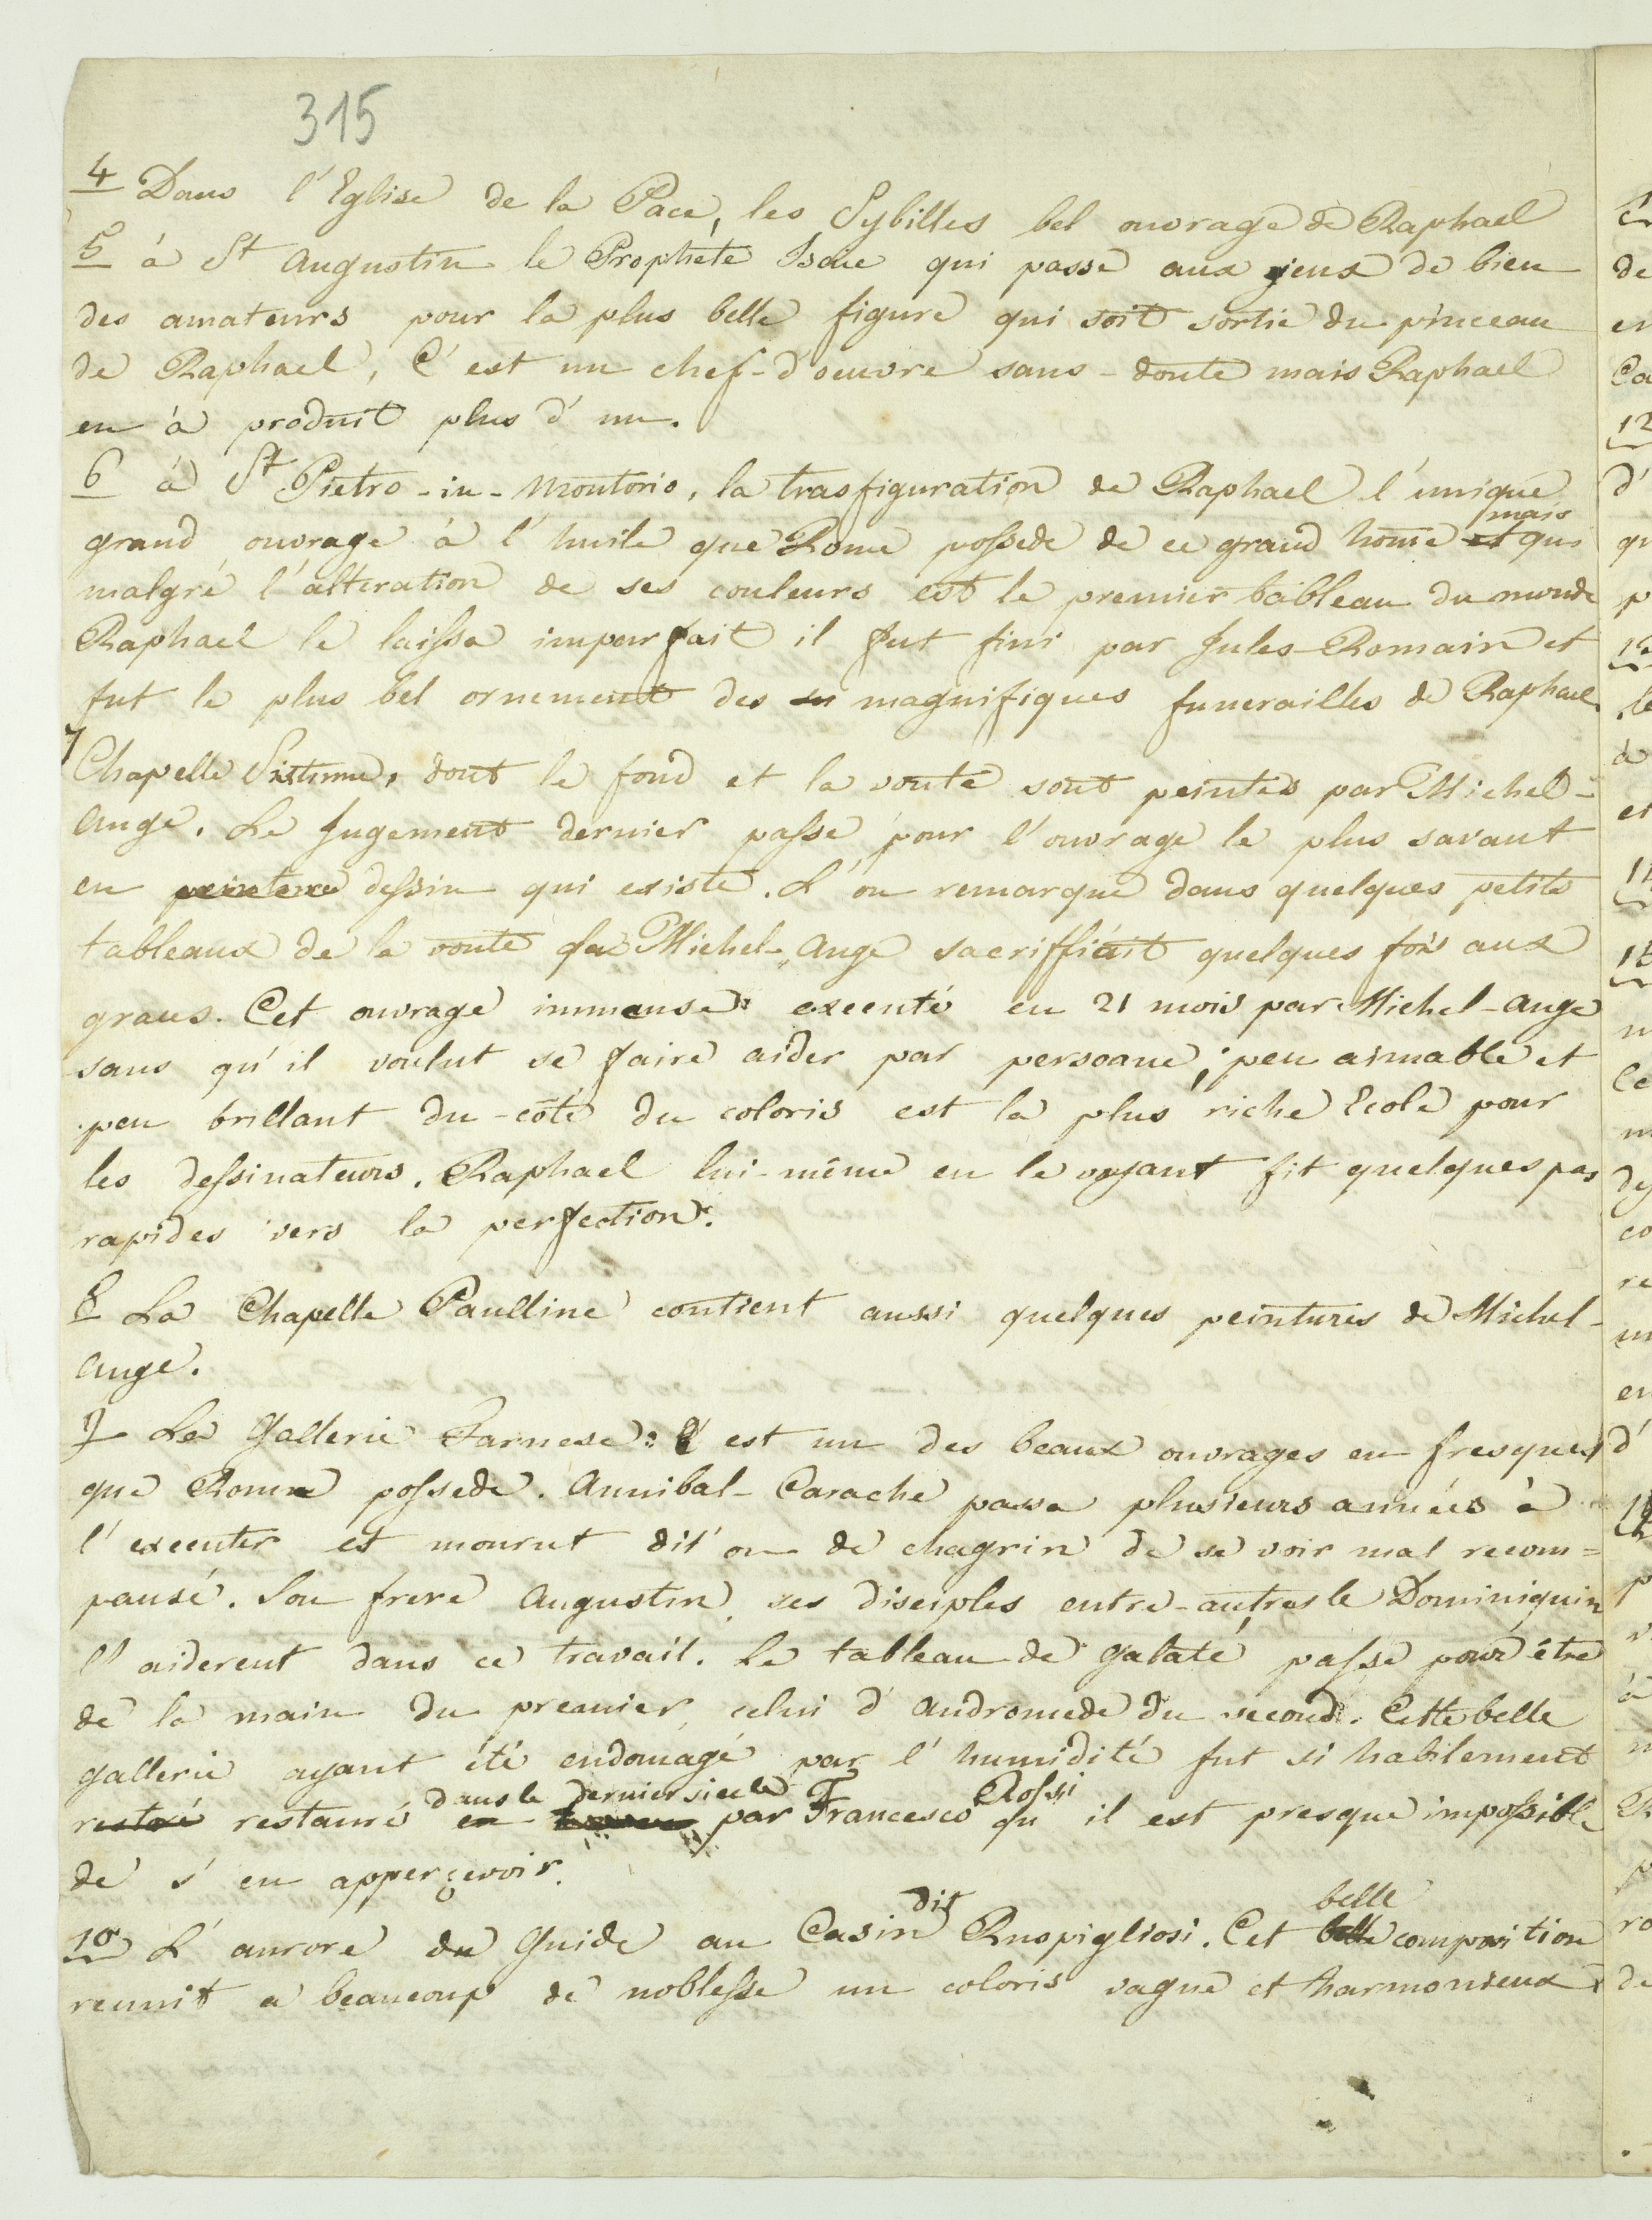 315
4 Dans l'Eglise de la Pace, les Sybilles bel ouvrage de Raphael
5 à St Augustin le Prophete Isaie qui passe aux yeux de bien
des amateurs pour la plus belle figure qui soit sortie du pinceau
de Raphael, C'est un chef-d'oeuvre sans-doute mais Raphael
en à produit plus d'un.
6 à St Pietro-in-Montorio, la trasfiguration de Raphael l'unique
mais
grand ouvrage à l'huile que Rome possede de ce grand home et qui
malgré l'alteration de ses couleurs est le premier tableau du monde
Raphael le laissa imparfait il fut fini par Jules Romain et
fut le plus bel ornement des magnifiques funerailles de Raphael
7
Chapelle Sistinne, dont le fond et la voute sont peintes par Michel-
Ange. Le Jugement dernier passe pour l'ouvrage le plus savant
en peinture dessin qui existe. L'on remarque dans quelques petits
tableaux de la voute que Michel-Ange sacriffiait quelques fois aux
graces. Cet ouvrage immense executé en 21 mois par Michel-Ange
sans qu'il voulut se faire aider par persoane; peu aimable et
peu brillant du-côté du coloris est la plus riche Ecole pour
les dessinateurs. Raphael lui-même en le voyant fit quelques pas
rapides vers la perfection.
8 La Chapelle Paulline contient aussi quelques peintures de Michel-
Ange.
9 La Gallerie Farnese: C'est un des beaux ouvrages en fresques
que Rome possede. Annibal-Carache passa plusieurs années à
l'executer et mourut dit'on de chagrin de se voir mal recom=
pansé. Son frere Augustin, ses disciples entre-autres le Dominiquin
l'aiderent dans ce travail. Le tableau de Galaté passe pour être
de la main du premier, celui d'Andromede du second. Cette belle
gallerie ayant été endomagé par l'humidité fut si habilement
dans le dernier siecle Rossi
restoré restauré en par Francesco qu'il est presque impossible
de s'en apperçevoir.
dit belle
10 L'aurore du Guide au Casin Ruspigliosi. Cet belle composition
reunit a beaucoup de noblesse un coloris vague et harmonieux